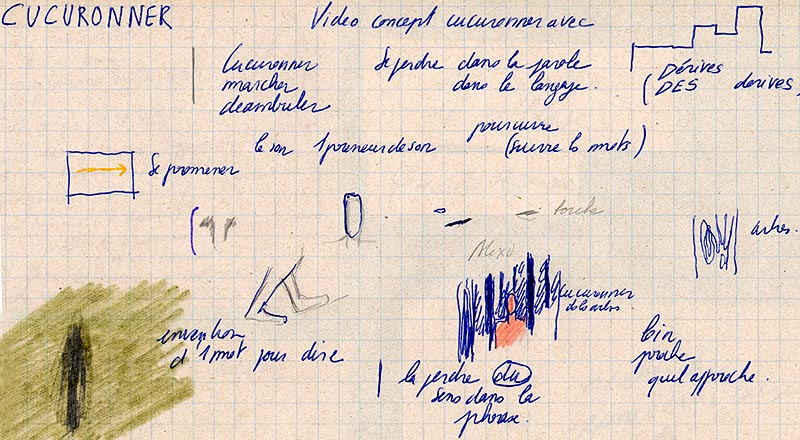 CUCURONNER
Video concept cucuronner avec
Cucuronner
marcher
deambuler
Se perdre dans la parole
dans le langage.
(DÉRIVES
DES derives)
le son 1 preneur de son
poursuivre
(suivre ls mots)
Se promener
torche
arbres.
cucuronner
invention
d'1 mot pour dire
la perdre du
sens dans la
phrase.
loin
proche
quel approche.